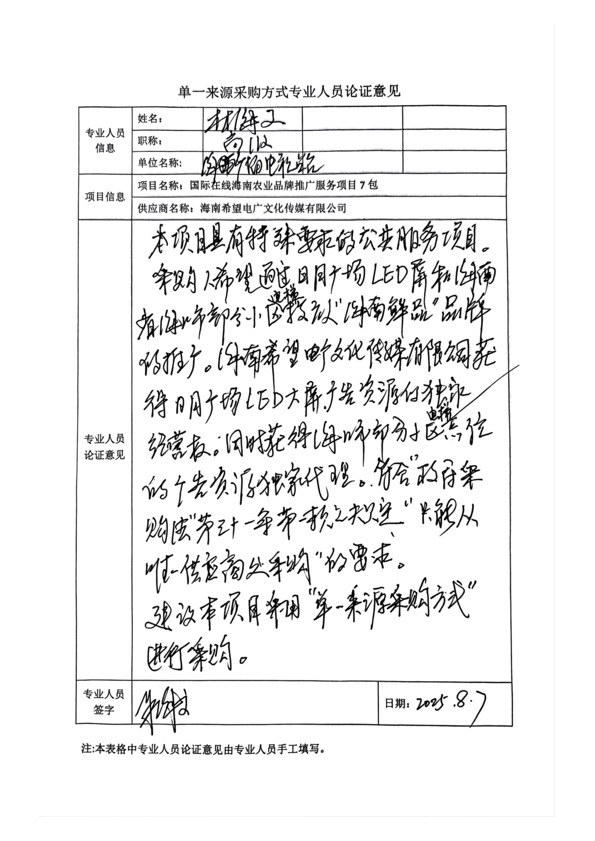 单一来源采购方式专业人员论证意见
专业人员信息
姓名：
职称： 高工
单位名称:
项目信息
项目名称：国际在线海南农业品牌推广服务项目7包
供应商名称：海南希望电广文化传媒有限公司
专业人员论证意见
本项目具有特殊要求的公共服务项目。
采购人希望通过日月广场LED屏和海南
省海口市部分小区电梯投放“海南鲜品”品牌
的推广。海南希望电广文化传媒有限公司获
得日月广场LED大屏广告资源位独家
经营权。同时获得海口市部分小区电梯点位
的广告资源独家代理。符合“政府采
购法”第三十一条第一款之规定“只能从
唯一供应商处采购”的要求。
建议本项目采用“单一来源采购方式”
进行采购。
专业人员签字
日期： 2025.8.7
注:本表格中专业人员论证意见由专业人员手工填写。